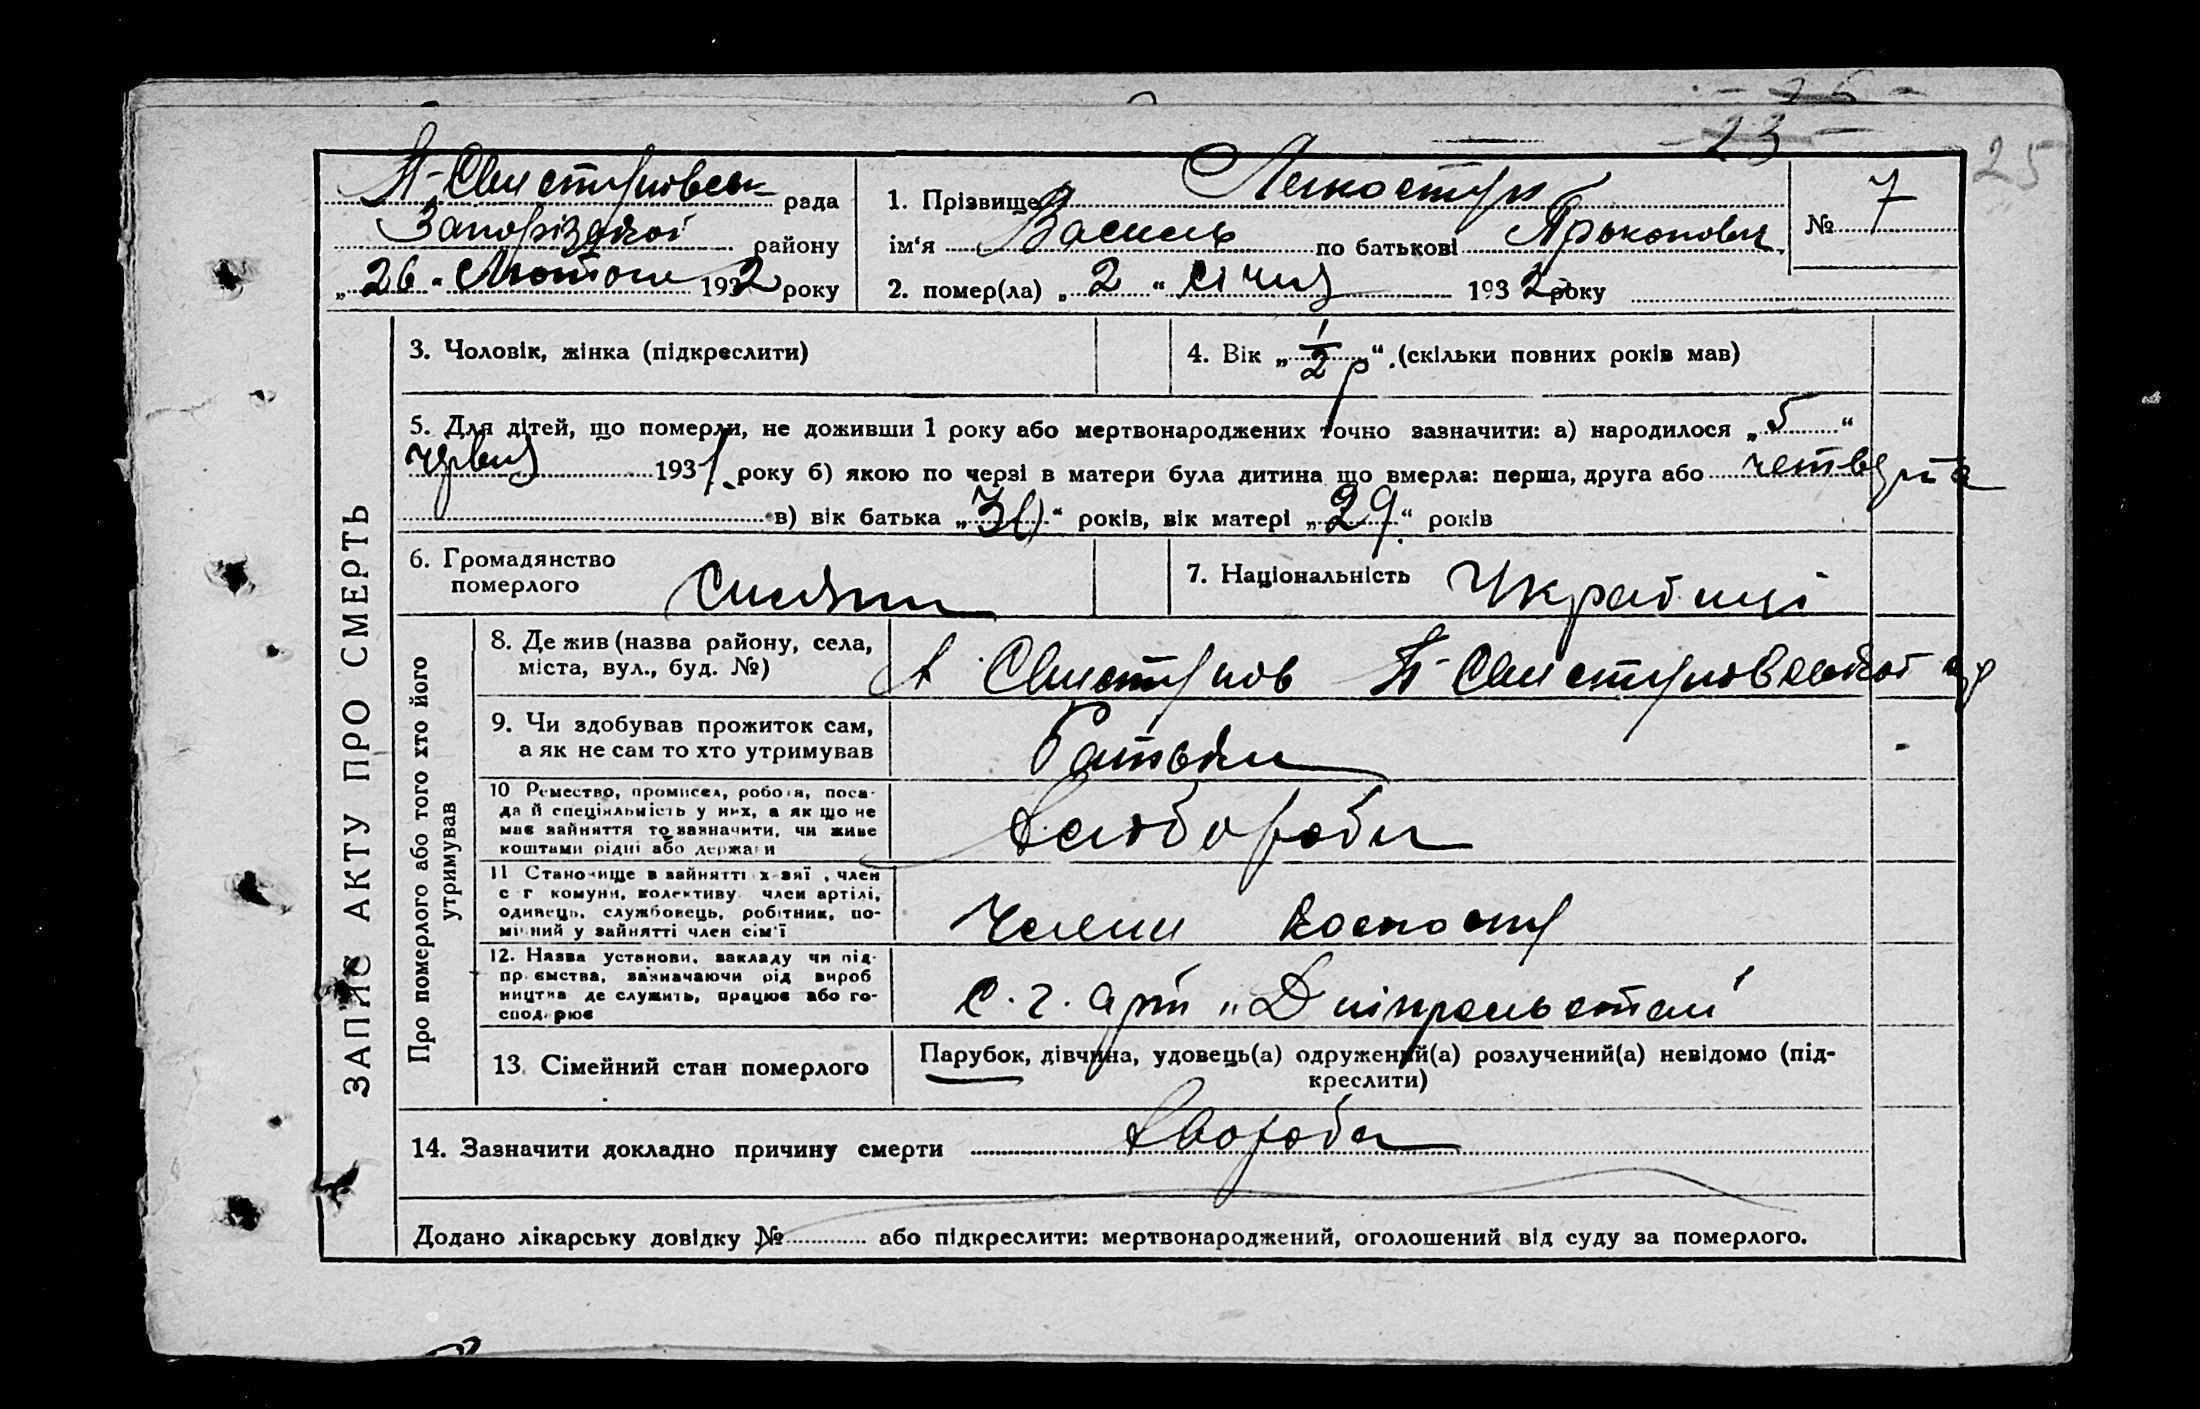 23
25
П-Свистуновськ рада
Запорізької району
„26“ Лютого 1932 року
1. Прізвище Легкоступ
ім‘я Василь по батькові Прокопович
№ 7
2. помер(ла) „2“ січня 1932 року
ЗАПИС АКТУ ПРО СМЕРТЬ
3. Чоловік, жінка (підкреслити)
4. Вік „1/2 р“ (скільки повних років мав)
5. Для дітей, що померли, не доживши 1 року або мертвонароджених точно зазначити: а) народилося „5“
червня 1931 року б) якою по черзі в матери була дитина що вмерла: перша, друга або четверта
в) вік батька „30“ років, вік матері „29“ років
6. Громадянство
померлого
7. Національність Українці
Про померлого або того хто його
утримував
8. Де жив (назва району, села,
міста, вул., буд. №)
Свистунов П-Свистуновської
9. Чи здобував прожиток сам,
а як не сам то хто утримував
Батьки
10 Ремество, промисел, робота, поса-
да й спеціяльність у них, а як що не
має зайняття то зазначити, чи живе
коштами рідні або держави
Хлібороби
11 Становище в зайнятті х-зяї, член
с г комуни, колективу член артілі,
одинець, службовець, робітник, по-
мічний у зайнятті член сім'ї
Члени колгоспу
12. Назва установи, закладу чи під-
приємства, зазначаючи рід вироб
ництва де служить, працює або го-
сподарює
С. г. арт „Дніпрельстан“
13. Сімейний стан померлого
Парубок, дівчина, удовець(а) одружений(а) розлучений(а) невідомо (під-
креслити)
14. Зазначити докладно причину смерти Хвороба
Додано лікарську довідку № або підкреслити: мертвонароджений, оголошений від суду за померлого.